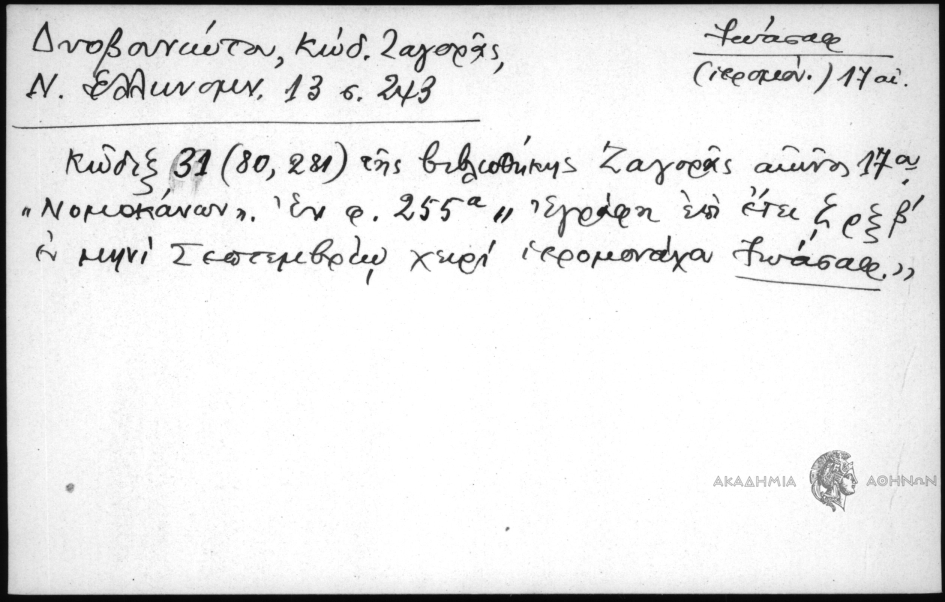 Δυοβουνιώτου, Κώδ. Ζαγορᾶς,
Ν. Ἑλληνομν. 13 σ. 243
Ἰωάσαφ
(ἱερομόν.) 17 αἰ.
Κῶδιξ 31 (80, 281) τῆς βιβλιοθήκης Ζαγορᾶς αἰῶνος 17ου
„Νομοκάνων". Ἐν φ. 255α „Ἐγράφη ἐπὶ ἔτει ζρξβ΄
ἐν μηνὶ Σεπτεμβρίῳ χειρὶ ἱερομονάχου Ἰωάσαφ."
ΑΚΑΔΗΜΙΑ ΑΘΗΝΩΝ